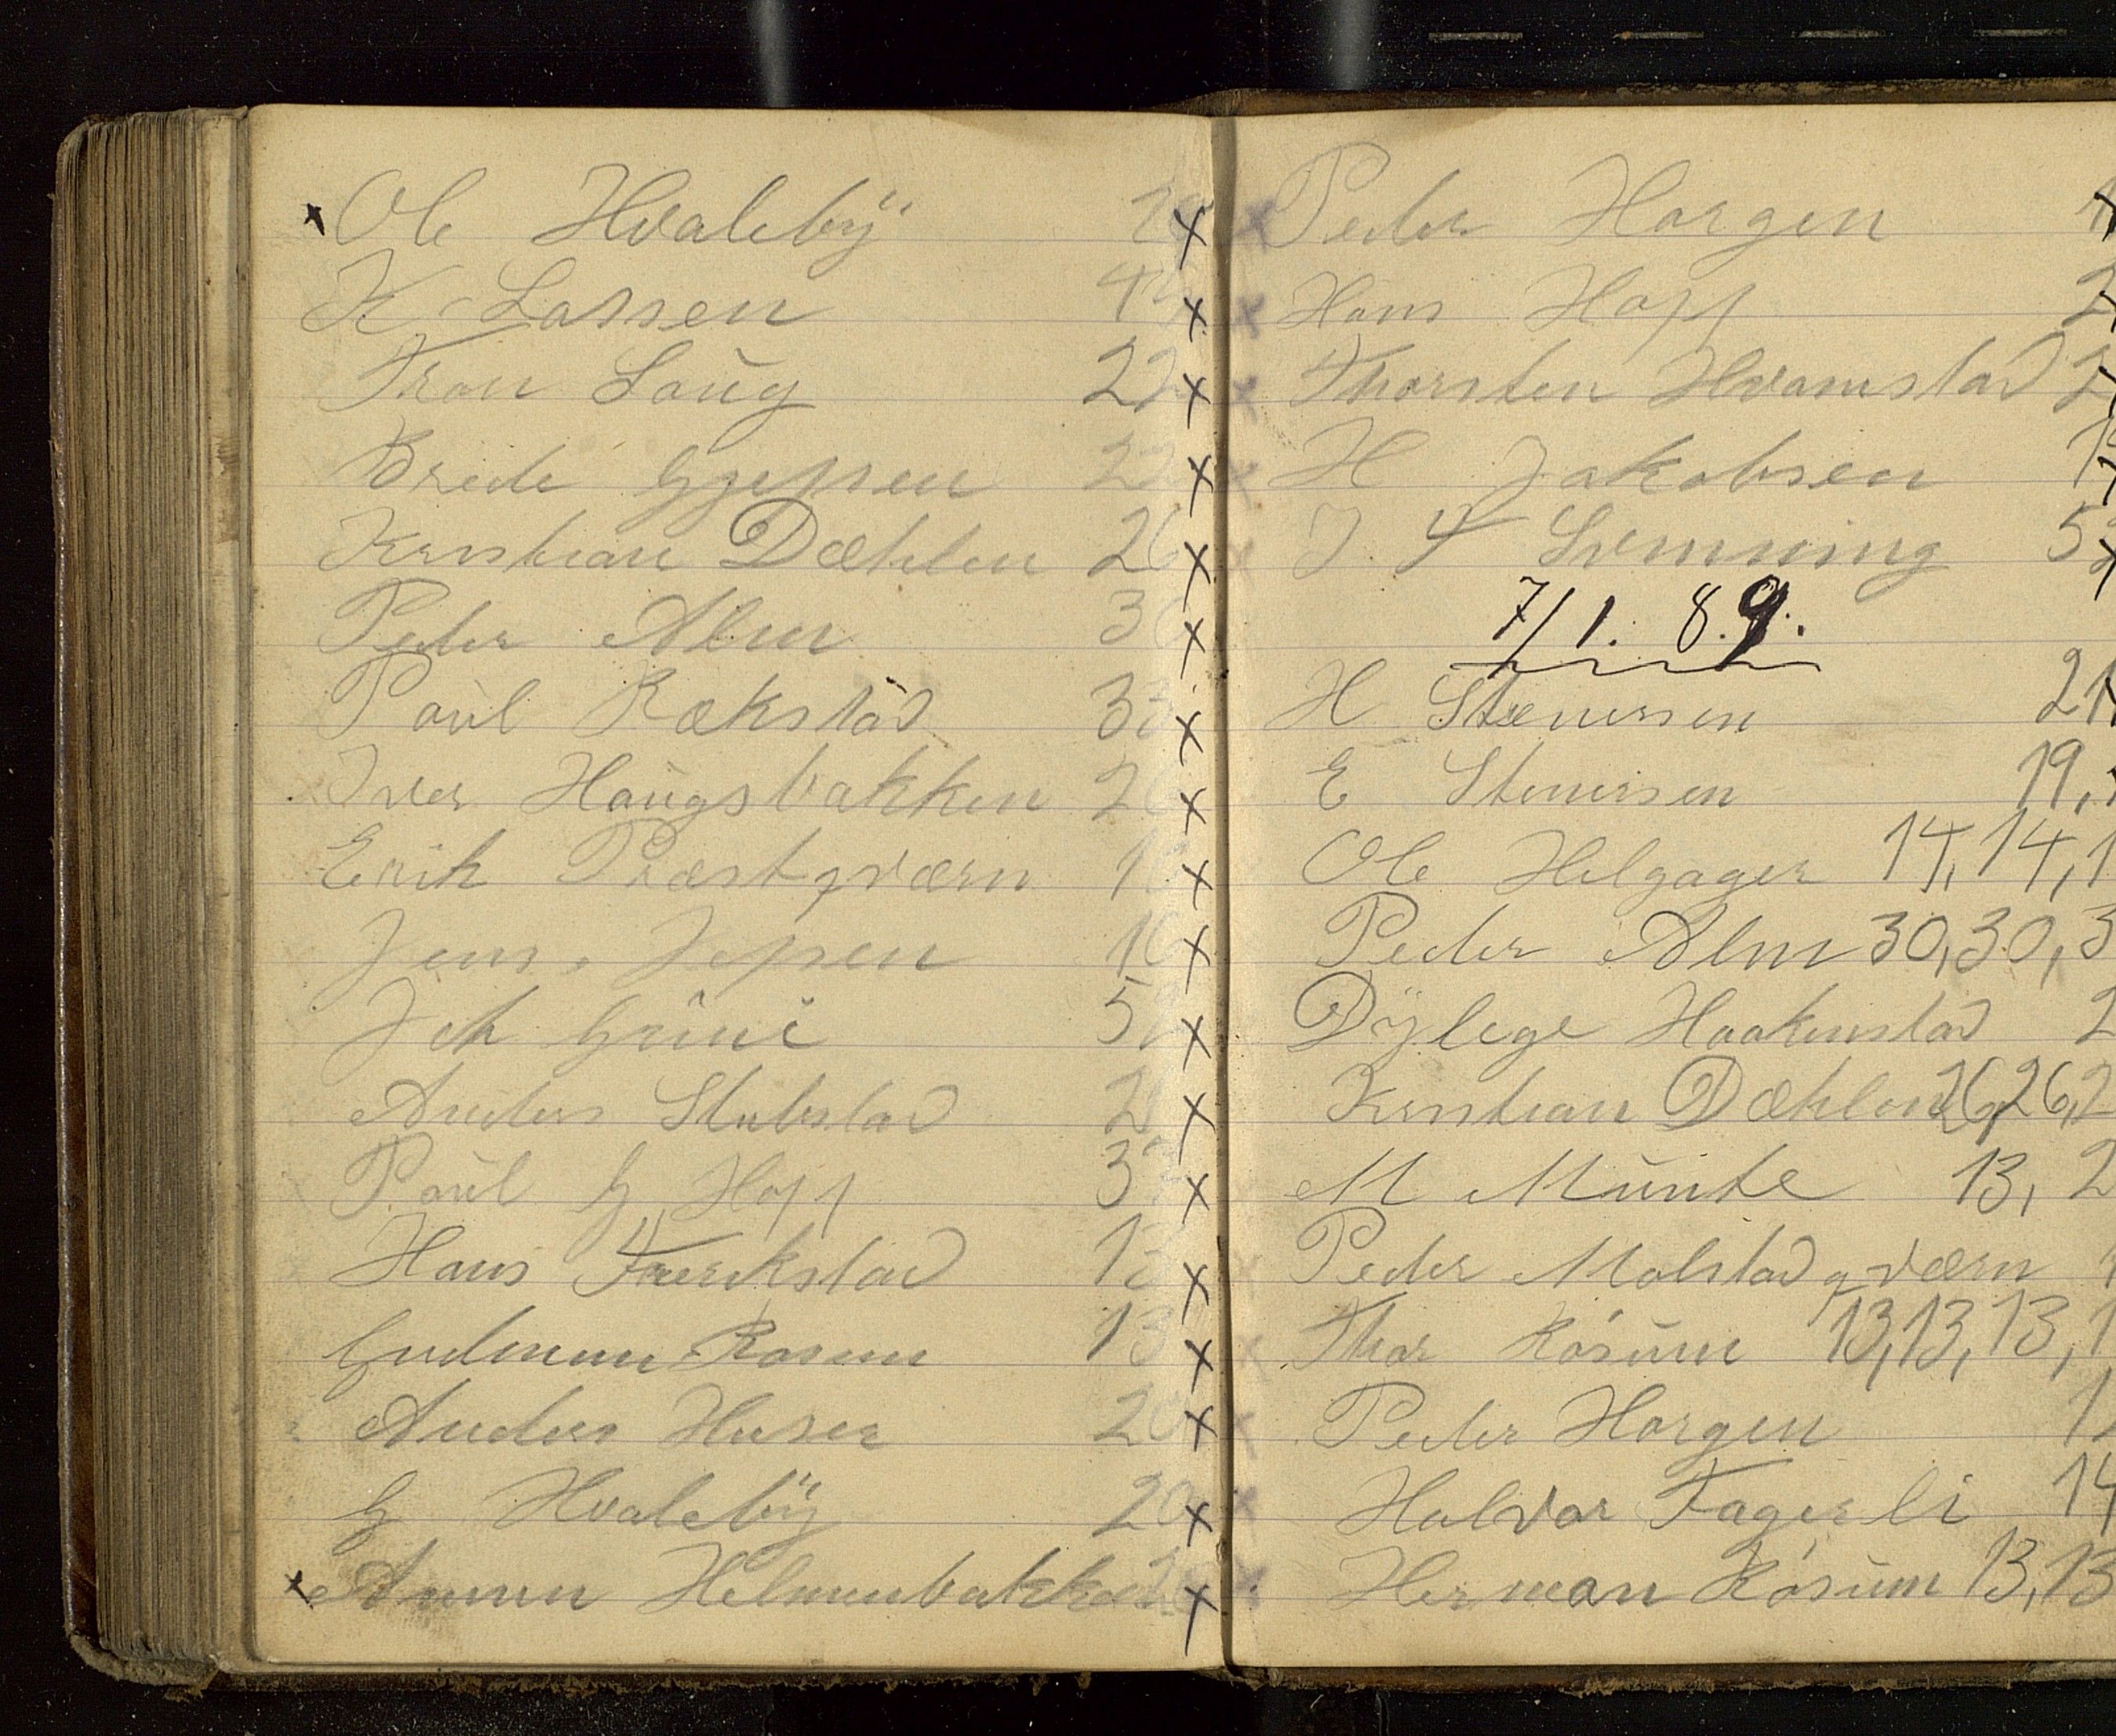 x Ole Hvaleby 20 x
K Lassen 4 x
Tron Laug 22 x
Brede Gjepsen 22 x
Kristian Dæhlen 26 x
Peder Alm 30 x
Paul Rækstad 3 x
Iver Haugsbakken 20 x
Erik Præstqværn 1 x
Jens Jepsen 10 x
Joh Grini 5 x
Anders Stubstad 2 x
Paul G Hopp 3 x
Hans Færkstad 1 x
Gudmun Rosum 13 x
Anders Huser 20 x
G Hvaleby 20 x
x Amun Helmenbakken x
Peder Horgen
Hans Hopp 2
Thorsten Hvamstad 2
H Jakobsen 1
J F Svenning 5
7/1. 89.
H Stenersen 21
E Stenersen 19,
Ole Helgager 14, 14, 1
Peder Alm 30, 30, 3
Dÿlege Haakenstad 2
Kristian Dæhlen 26, 26, 2
M Munte 13, 2
Peder Molstadqværn 1
Thor Rosum 13, 13, 13, 1
Peder Horgen 1
Halvor Fagerli 14
Herman Rosum 13, 13